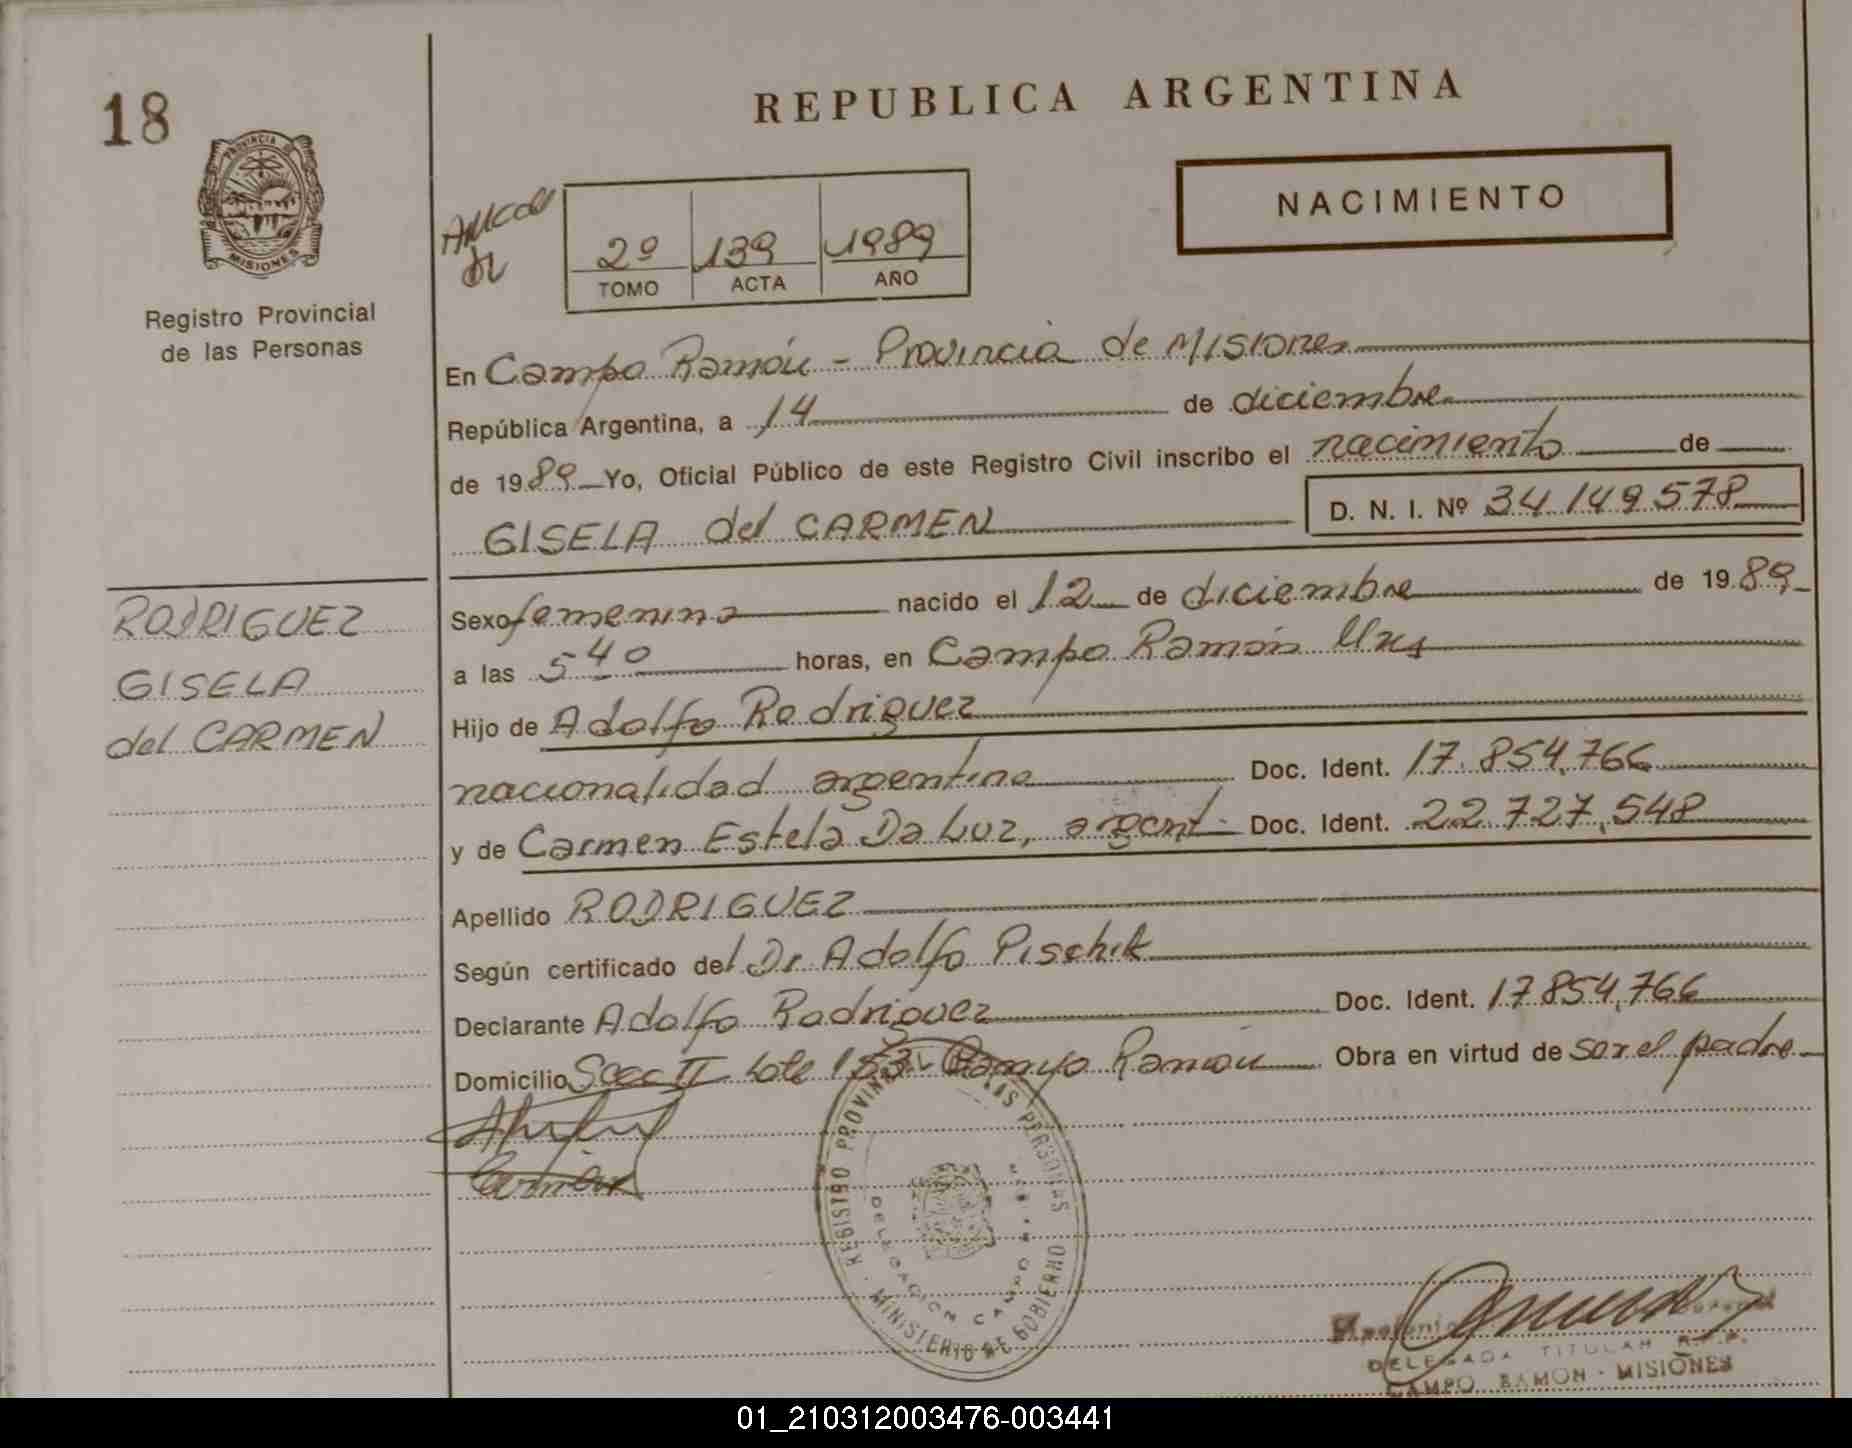 18
REPUBLICA ARGENTINA
PROVINCIA DE
MISIONES
Registro Provincial
de las Personas
2º 139 1989
TOMO ACTA AÑO
NACIMIENTO
En Campo Ramón - Provincia de Misiones
República Argentina, a 14 de diciembre
de 1989 Yo, Oficial Público de este Registro Civil inscribo el nacimiento de
GISELA del CARMEN
D. N. I. Nº 34.149.578
RODRIGUEZ
GISELA
del CARMEN
Sexo femenino nacido el 12 de diciembre de 1989
a las 5 40 horas, en Campo Ramón Mns
Hijo de Adolfo Rodriguez
nacionalidad argentina Doc. Ident. 17.854.766
y de Carmen Estela Da Luz, argent. Doc. Ident. 22.727.548
Apellido RODRIGUEZ
Según certificado del Dr Adolfo Pischik
Declarante Adolfo Rodriguez Doc. Ident. 17854.766
Domicilio Secc II Lote 153 Campo Ramón Obra en virtud de ser el padre
REGISTRO PROVINCIAL LAS PERSONAS
DELEGACION CAMPO RAMON
MINISTERIO DE GOBIERNO
DELEGADA TITULAR R.P.P.
CAMPO RAMON - MISIONES
01_210312003476-003441